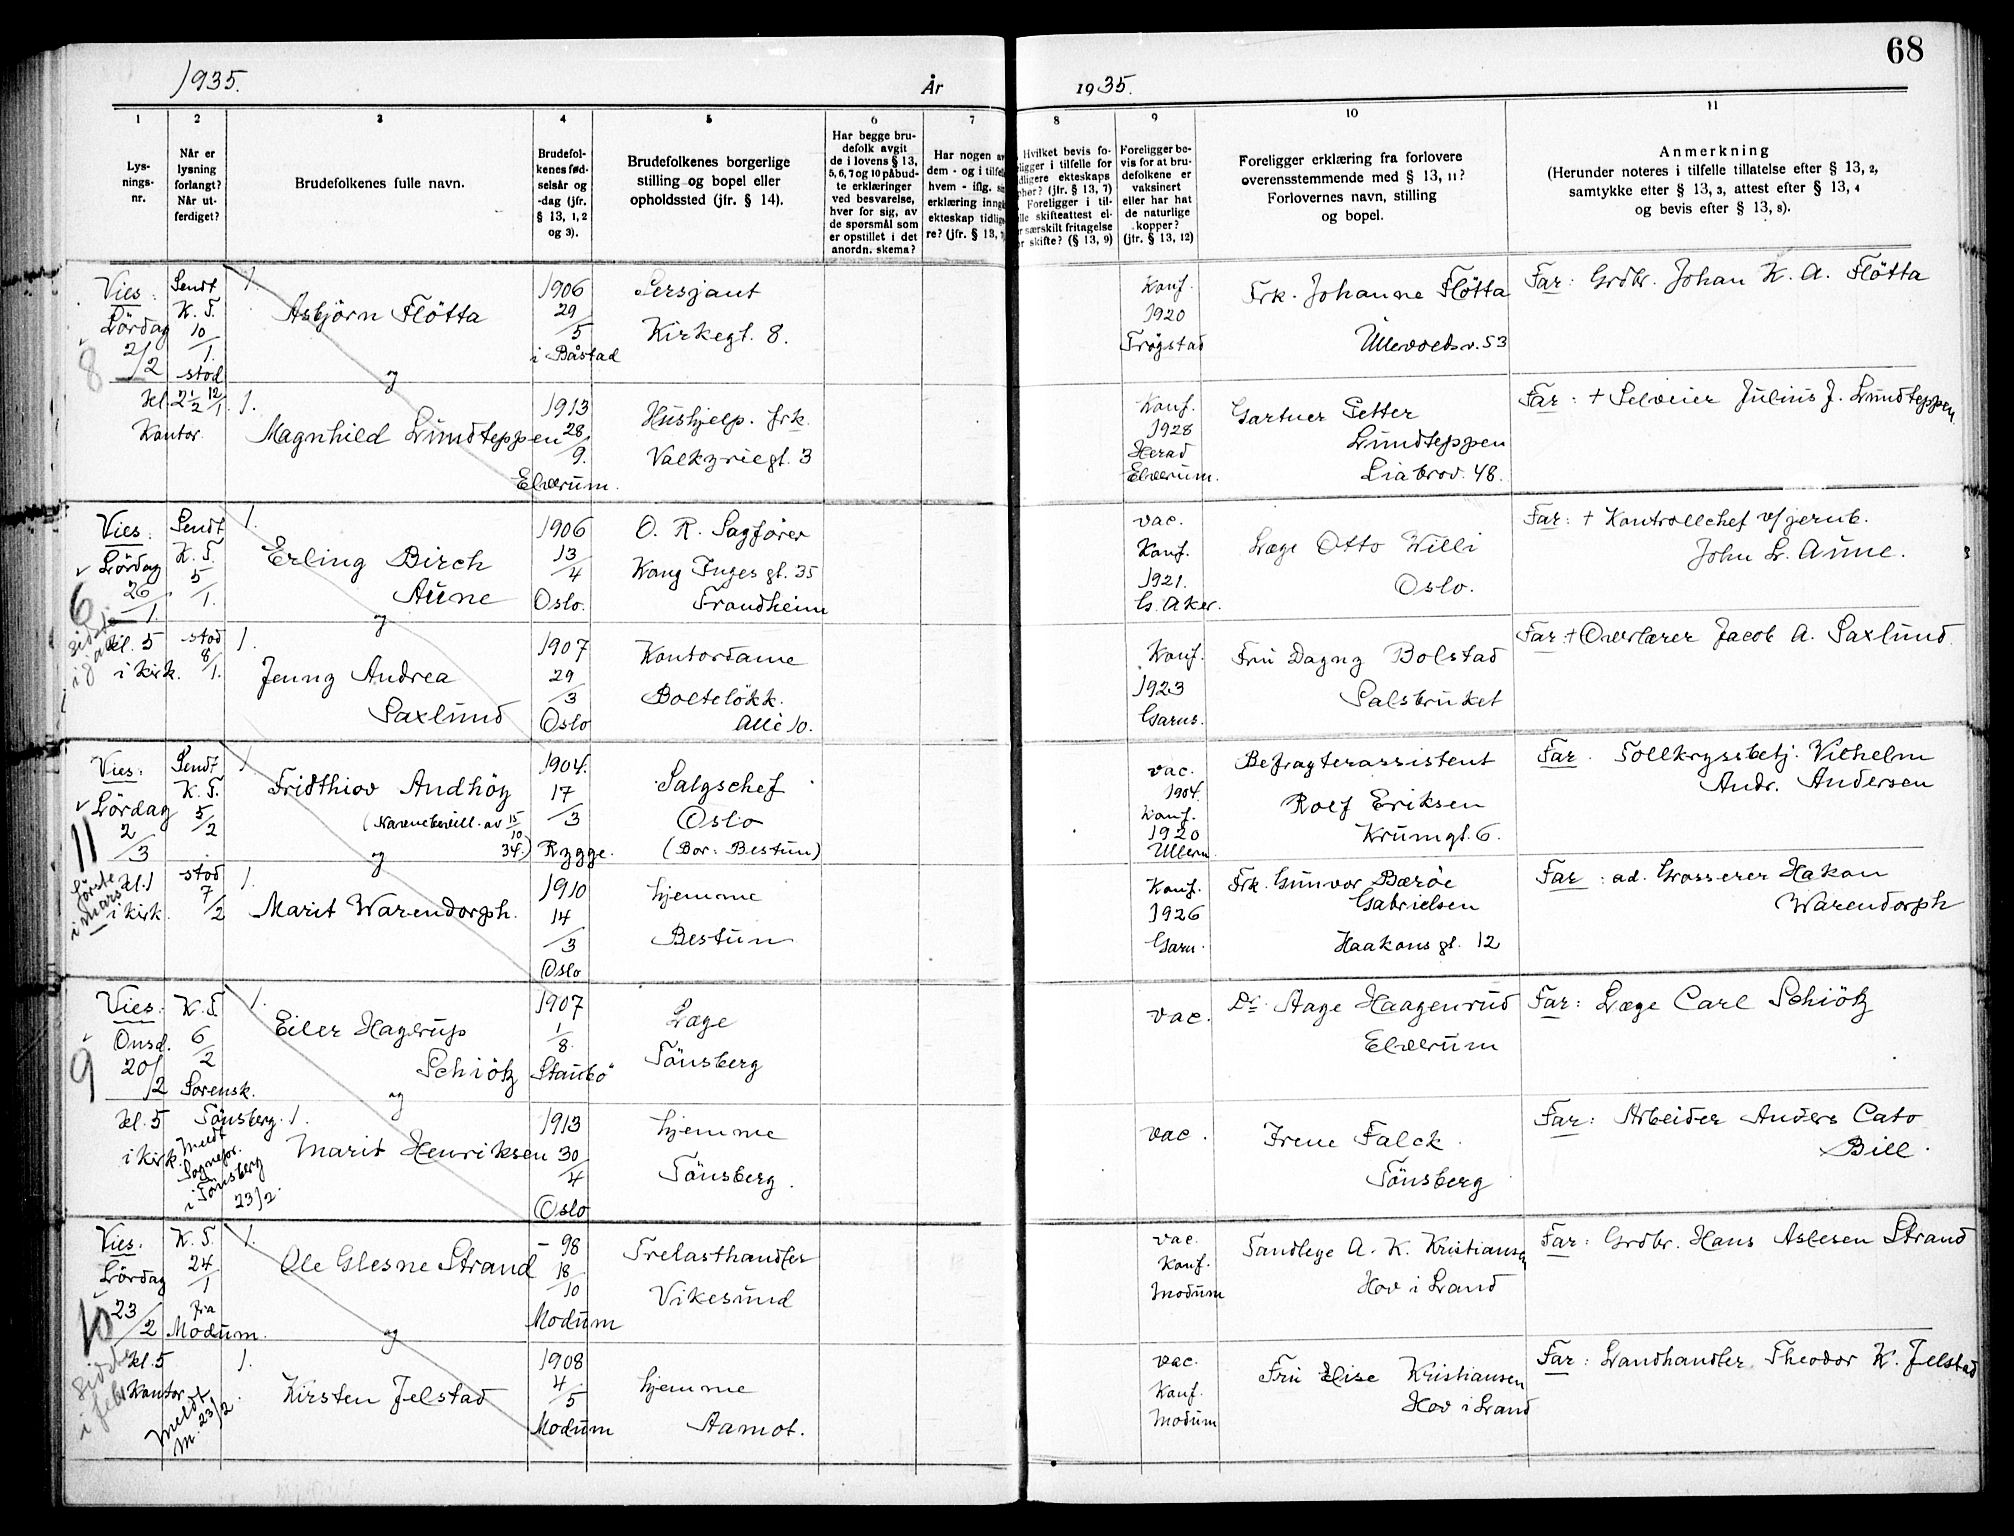 68
1935.
År
1935.
1
2
3
4
5
6
7
8
9
10
11
Lys-
nings-
nr.
Når er
lysning
forlangt?
Når ut-
ferdiget?
Brudefolkenes fulle navn.
Brudefol-
kenes fød-
selsår og
-dag (jfr.
§ 13, 1, 2
og 3).
Brudefolkenes borgerlige
stilling og bopel eller
opholdssted (jfr. § 14).
Har begge bru-
defolk avgit
de i lovens § 13,
5, 6, 7 og 10 påbud-
te erklæringer
ved besvarelse,
hver for sig, av
de spørsmål som
er opstillet i det
anordn. skema?
Har nogen av
dem - og i tilfelle
hvem - iflg. si
erklæring inng
ekteskap tidlig
re? (jfr. § 13,
Hvilket bevis fo-
religger i tilfelle for
tidligere ekteskaps
opher? (jfr. § 13, 7)
Foreligger i til-
felle skifteattest el-
er særskilt fritagelse
for skifte? (§ 13, 9)
Foreligger be-
vis for at bru-
defolkene er
vaksinert
eller har hat
de naturlige
kopper?
(jfr. § 13, 12)
Foreligger erklæring fra forlovere
overensstemmende med § 13, 11?
Forlovernes navn, stilling
og bopel.
Anmerkning
(Herunder noteres i tilfelle tillatelse efter § 13, 2,
samtykke efter § 13, 3, attest efter § 13, 4
og bevis efter § 13, 8).
8
Vies:
Lördag
2/2
Kl. 2 1/2
Kontor.
Sendt
K. T.
10/1.
stod
12/1.
1.
Asbjörn Flötta
og
1.
Magnhild Lundteppen
1906
29/5
i Båstad
1913
28/9.
Elverum.
Sersjant
Kirkegt. 8.
Hushjelp. frk.
Valkyriegt. 3
Konf.
1920
Trøgstad
Konf.
1928
Herad
Elverum.
Frk. Johanne Flötta
Ullevoldsv. 53
Gartner Petter
Lundteppen
Liabrov. 48.
Far: Grdbr. Johan K. A. Flötta
Far: + Selveier Julius J. Lundteppen
6
Vies:
Lördag
26/1.
kl. 5
i kirk.
Sendt
K. T.
5/1.
stod
8/1.
1.
Erling Birch
Aune
og
1.
Jenny Andrea
Saxlund
1906
13/4
Oslo.
1907
29/3
Oslo
O. R. Sagfører
Kong Inges gt. 35
Trondheim
Kontordame
Bolteløkk.
Allé 10.
vac.
Konf.
1921.
G. Aker.
Konf.
1923
Garns.
Læge Otto Willi
Oslo.
Fru Dagny Bolstad
Salsbruket
Far: + Kontrollchef v/ jernb.
John L. Aune.
Far: + Overlærer Jacob A. Saxlund
11
første
i mars
Vies:
Lördag
2/3
Kl. 1
i kirk.
Sendt
K. T.
5/2
stod
7/2
1
Fridthiov Andhöy
(Navnebevill. av 15/10
34.)
og
1.
Marit Warendorph.
1904.
17/3
Rygge.
1910
14/3
Oslo
Salgschef
Oslo
(Bor: Bestun)
hjemme
Bestun
vac.
1904.
Konf.
1920
Ullern
Konf.
1926
Garn.
Befragterassistent
Rolf Eriksen
Krumgt. 6.
Frk. Gunvor Bærøe
Gabrielsen
Haakons gt. 12
Far. Tollkryssbetj. Vilhelm
Andr. Andersen
Far: ad. Grosserer Hakon
Warendorph
9
Vies:
Onsd.
20/2
Kl. 5
i kirk.
K. T.
6/2
Sorensk.
Tönsberg.
Meldt
Sognepr.
i Tönsberg
23/2.
1.
Eiler Hagerup
Schiötz
og
1.
Marit Henriksen
1907
1/8.
Staubö
1913
30/4
Oslo
Læge
Tönsberg
hjemme
Tönsberg.
vac.
vac.
Dr. Aage Haagenrud
Elverum
Irene Falck.
Tönsberg
Far: Læge Carl Schiötz
Far: Arbeider Anders Cato
Bill.
10
sidste
i febr
Vies:
Lördag
23/2
Kl. 5
Kontor
Meldt
M. 23/2
K. T.
24/1
fra
Modum.
1.
Ole Glesne Strand
og
1.
Kirsten Jelstad
- 98
18/10
Modum
1908
4/5
Modum
Trelasthandler
Vikesund
hjemme
Aamot.
vac.
Konf.
Modum
vac.
Konf.
Modum
Tandlege A. K. Kristiansen
Hov i Land
Fru Elise Kristiansen
Hov i Land
Far: Grdbr. Hans Aslesen Strand
Far: Landhandler Theodor K. Jelstad